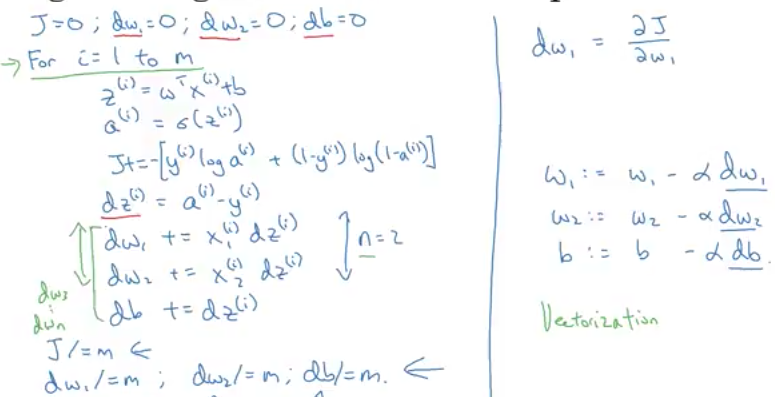 J=0 ; dw₁=0 ; dw₂=0 ; db=0
→ For i = 1 to m
z⁽ⁱ⁾ = ωᵀx⁽ⁱ⁾+b
a⁽ⁱ⁾ = σ(z⁽ⁱ⁾)
J+=-[y⁽ⁱ⁾ log a⁽ⁱ⁾ + (1-y⁽ⁱ⁾) log(1-a⁽ⁱ⁾)]
dz⁽ⁱ⁾ = a⁽ⁱ⁾-y⁽ⁱ⁾
dw₁ += x₁⁽ⁱ⁾ dz⁽ⁱ⁾
dw₂ += x₂⁽ⁱ⁾ dz⁽ⁱ⁾
n=2
db += dz⁽ⁱ⁾
dw₃
⋮
dwₙ
J/=m ←
dw₁/=m ; dw₂/=m ; db/=m. ←
dw₁ = ∂J/∂w₁
w₁ := w₁ - α dw₁
w₂ := w₂ - α dw₂
b := b - α db.
Vectorization